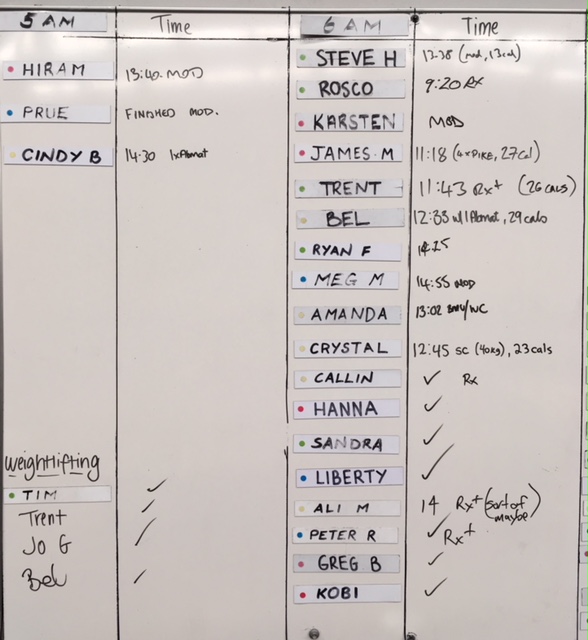 5 AM Time
HIRAM 13:40. MOD
PRUE FINISHED MOD.
CINDY B 14:30 1xAbmat
weightlifting
TIM ✓
Trent ✓
JO G ✓
Bel ✓
6 AM Time
STEVE H 13:38 (mod, 13cal)
ROSCO 9:20 Rx
KARSTEN MOD
JAMES M 11:18 (4xPIKE, 27Cal)
TRENT 11:43 Rx+ (26 CALS)
BEL 12:33 w/1Abmat, 29cals
RYAN F
MEG M 14:55 MOD
AMANDA 13:02
CRYSTAL 12:45 SC (40kg), 23cals
CALLIN ✓ Rx
HANNA ✓
SANDRA ✓
LIBERTY ✓
ALI M 14 Rx+ (sort of
maybe)
PETER R ✓ Rx+
GREG B ✓
KOBI ✓